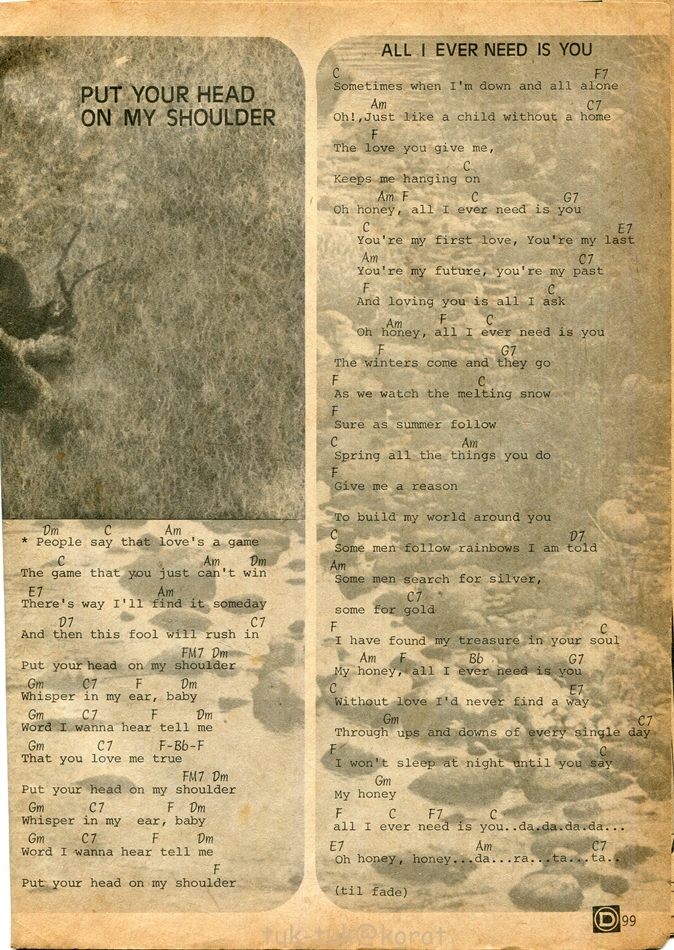 PUT YOUR HEAD
ON MY SHOULDER
Dm C Am
* People say that love's a game
C Am Dm
The game that you just can't win
E7 Am
There's way I'll find it someday
D7 C7
And then this fool will rush in
FM7 Dm
Put your head on my shoulder
Gm C7 F Dm
Whisper in my ear, baby
Gm C7 F Dm
Word I wanna hear tell me
Gm C7 F-Bb-F
That you love me true
FM7 Dm
Put your head on my shoulder
Gm C7 F Dm
Whisper in my ear, baby
Gm C7 F Dm
Word I wanna hear tell me
F
Put your head on my shoulder
ALL I EVER NEED IS YOU
C F7
Sometimes when I'm down and all alone
Am C7
Oh!,Just like a child without a home
F
The love you give me,
C
Keeps me hanging on
Am F C G7
Oh honey, all I ever need is you
C E7
You're my first love, You're my last
Am C7
You're my future, you're my past
F C
And loving you is all I ask
Am F C
Oh honey, all I ever need is you
F G7
The winters come and they go
F C
As we watch the melting snow
F
Sure as summer follow
C Am
Spring all the things you do
F
Give me a reason
To build my world around you
C D7
Some men follow rainbows I am told
Am
Some men search for silver,
C7
some for gold
F C
I have found my treasure in your soul
Am F Bb G7
My honey, all I ever need is you
C E7
Without love I'd never find a way
Gm C7
Through ups and downs of every single day
F C
I won't sleep at night until you say
Gm
My honey
F C F7 C
all I ever need is you..da.da.da.da...
E7 Am C7
Oh honey, honey...da...ra...ta...ta..
(til fade)
D 99
tuk-tuk@korat